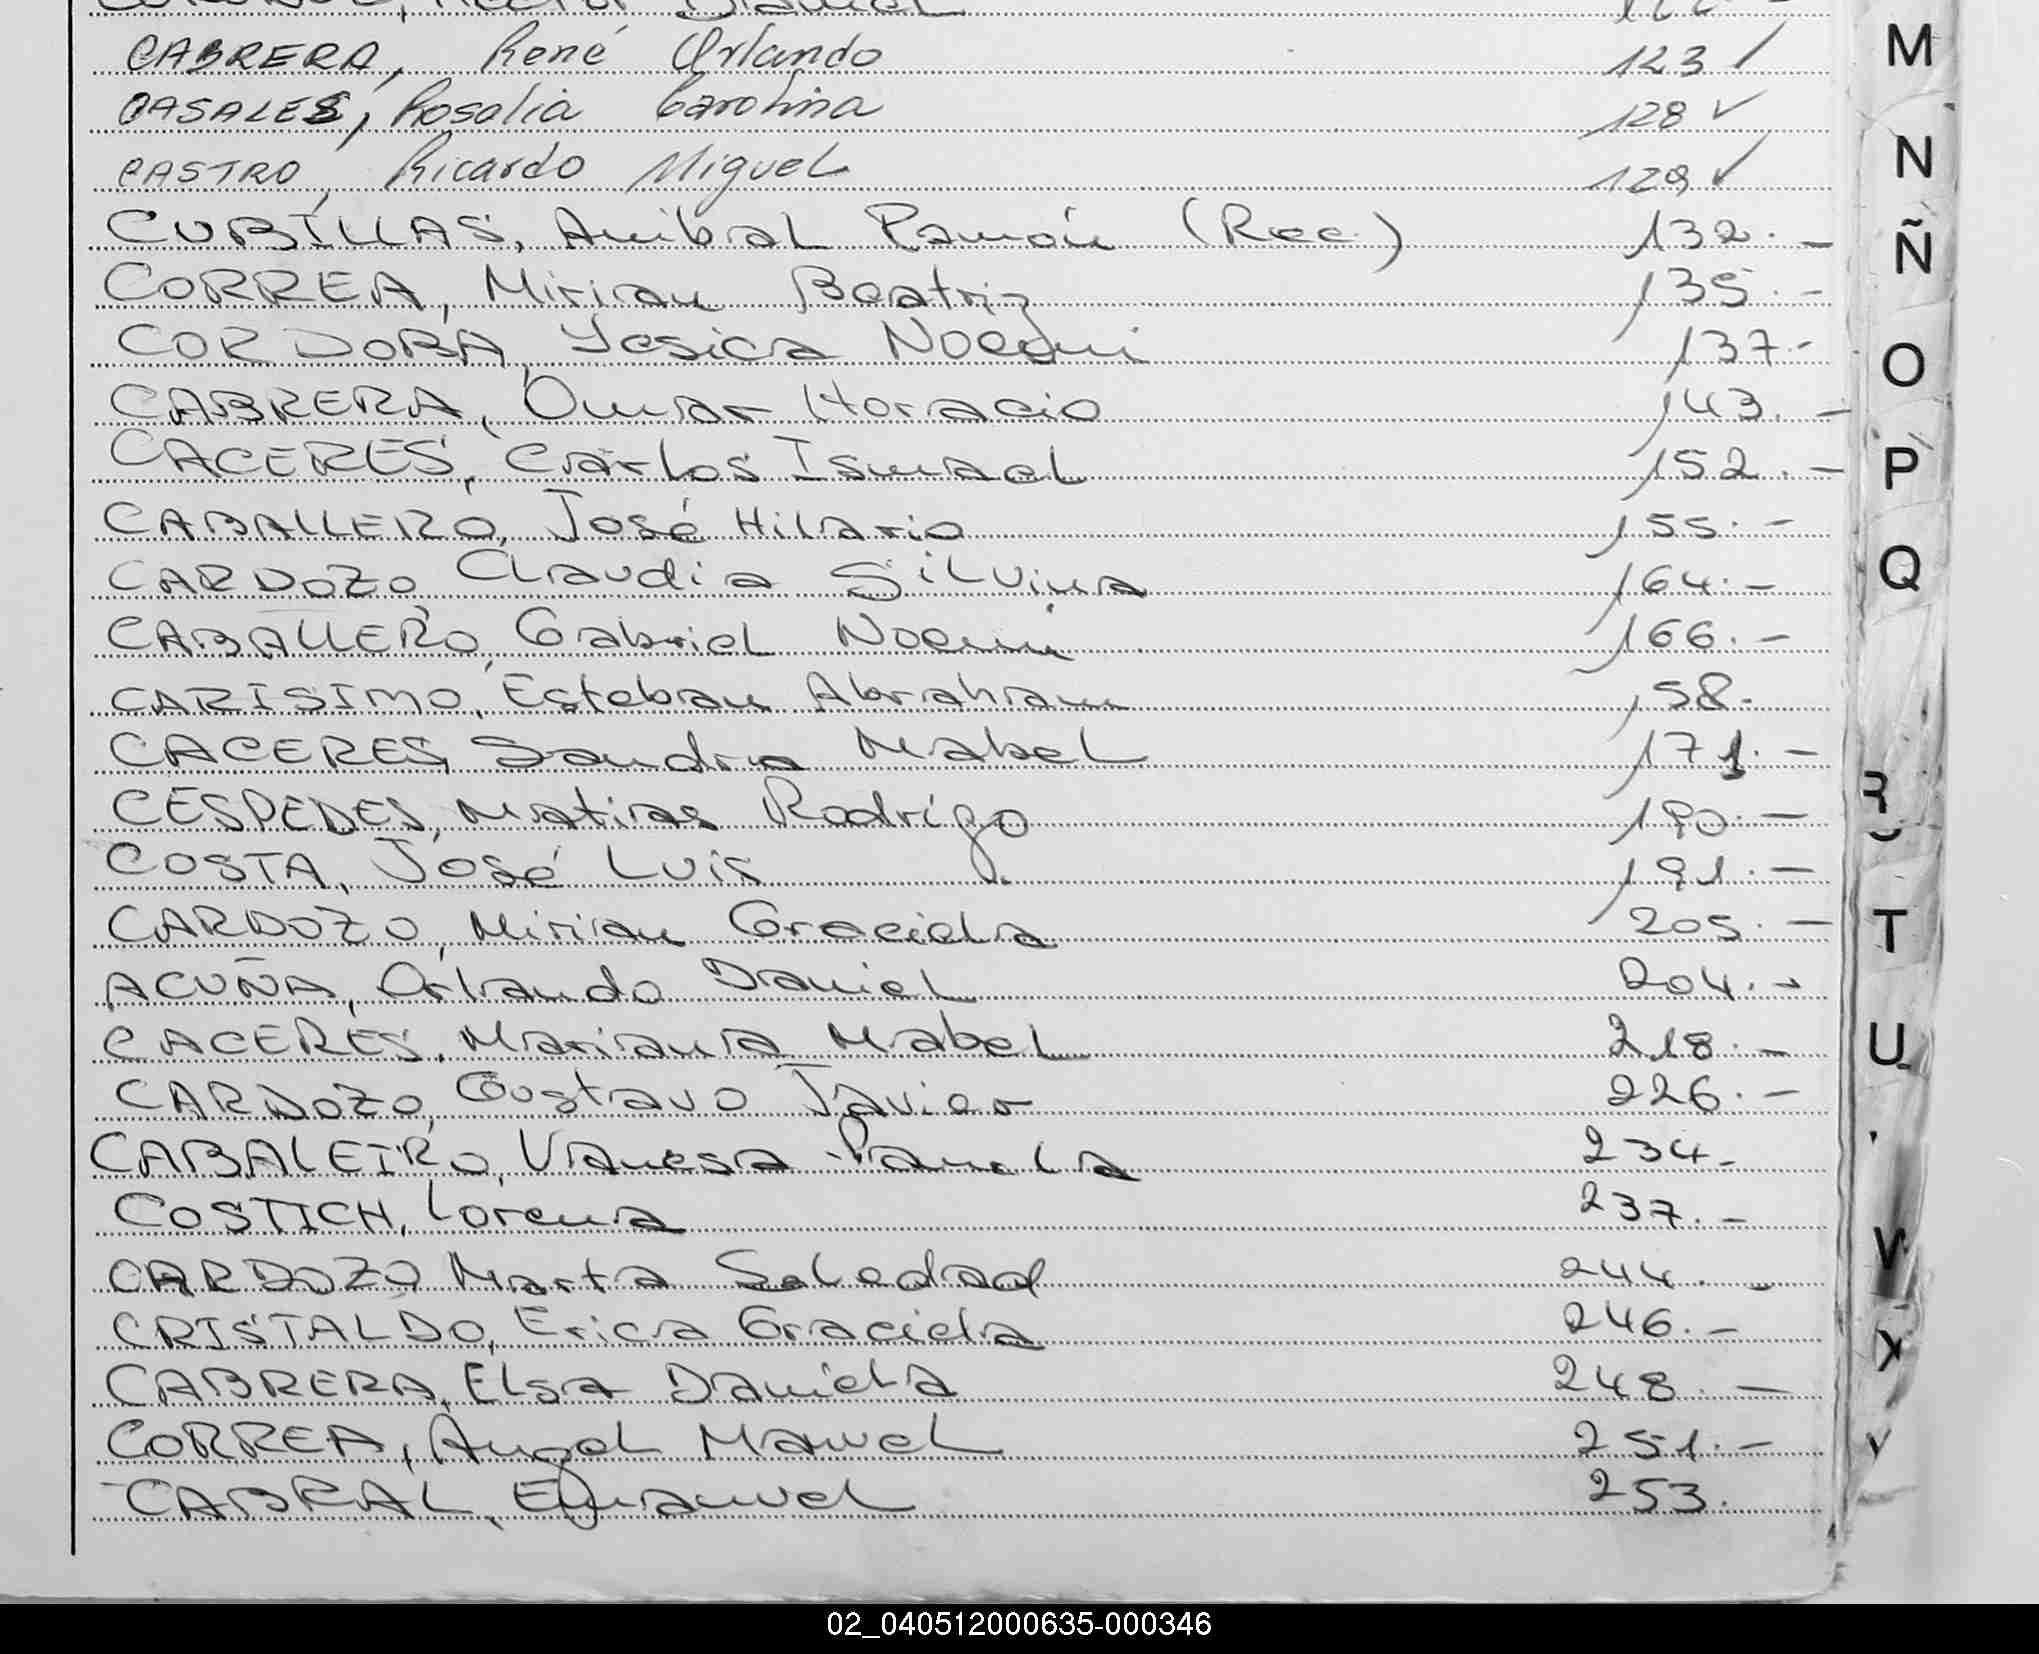 Daniel
CABRERA, René Orlando 123
CASALES, Rosalia Carolina 128
CASTRO, Ricardo Miguel 129
CUBILLAS, Anibal Ramón (Rec.) 132.-
CORREA, Mirian Beatriz 135.-
CORDOBA, Yesica Noemi 137.-
CABRERA, Omar Horacio 143.-
CACERES, Carlos Ismael 152.-
CABALLERO, José Hilario 155.-
CARDOZO Claudia Silvina 164.-
CABALLERO, Gabriel Noemi 166.-
CARISIMO, Esteban Abraham 158.
CACERES, Sandra Mabel 171.-
CESPEDES, Matias Rodrigo 190.-
COSTA, José Luis 191.-
CARDOZO, Mirian Graciela 205.-
ACUÑA, Orlando Daniel 204.-
CACERES, Mariana Mabel 218.-
CARDOZO, Gustavo Javier 226.-
CABALEIRO, Vanesa Pamela 234-
COSTICH, Lorena 237.-
CARDOZO Marta Soledad 244.-
CRISTALDO, Erica Graciela 246.-
CABRERA, Elsa Daniela 248.-
CORREA, Angel Manuel 251.-
CABRAL, Emanuel 253.
M
N
Ñ
O
P
Q
R
T
U
V
X
Y
02_040512000635-000346